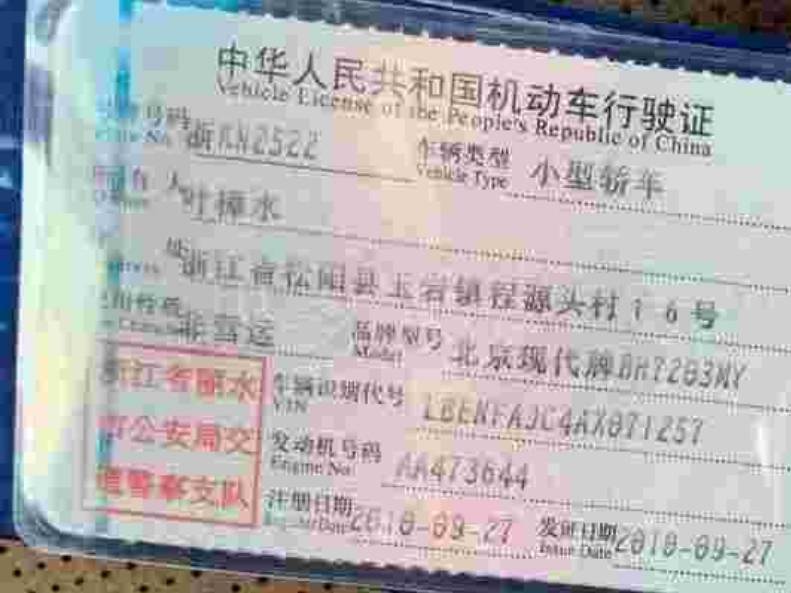 中华人民共和国机动车行驶证
Vehicle License of the People's Republic of China
号码 浙KN2522 车辆类型 小型轿车
Vehicle Type
人 叶樟水
址 浙江省松阳县玉岩镇程源头村16号
非营运 品牌型号 北京现代牌BH7203MY
Model
浙江省丽水 车辆识别代号 LBENFAJC4AX071257
VIN
市公安局交 发动机号码 AA473644
Engine No.
通警察支队 注册日期 2010-09-27 发证日期 2010-09-27
Issue Date